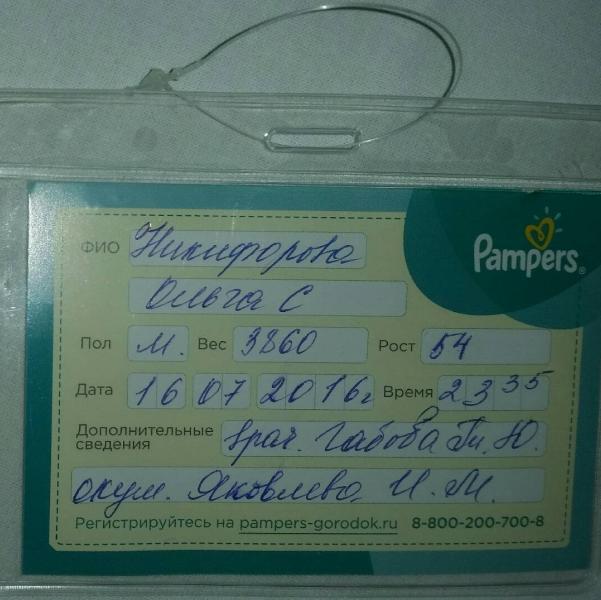 Pampers
ФИО Никифорова
Ольга С
Пол м. Вес 3860 Рост 54
Дата 16 07 2016г Время 23 35
Дополнительные сведения врач. Габова Ю.
акуш. Яковлева И. М.
Регистрируйтесь на pampers-gorodok.ru 8-800-200-700-8